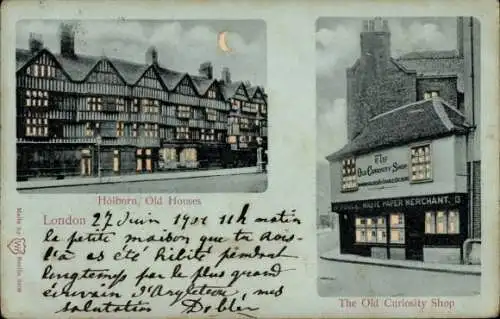 THE
OLD CURIOSITY SHOP
WASTE PAPER MERCHANT. 13
Holborn, Old Houses
London 27 Juin 1901 11h matin
la petite maison que tu vois
là a été habité pendant
longtemps par le plus grand
écrivain d'Angleterre, mes
salutations
Made by
Berlin
The Old Curiosity Shop